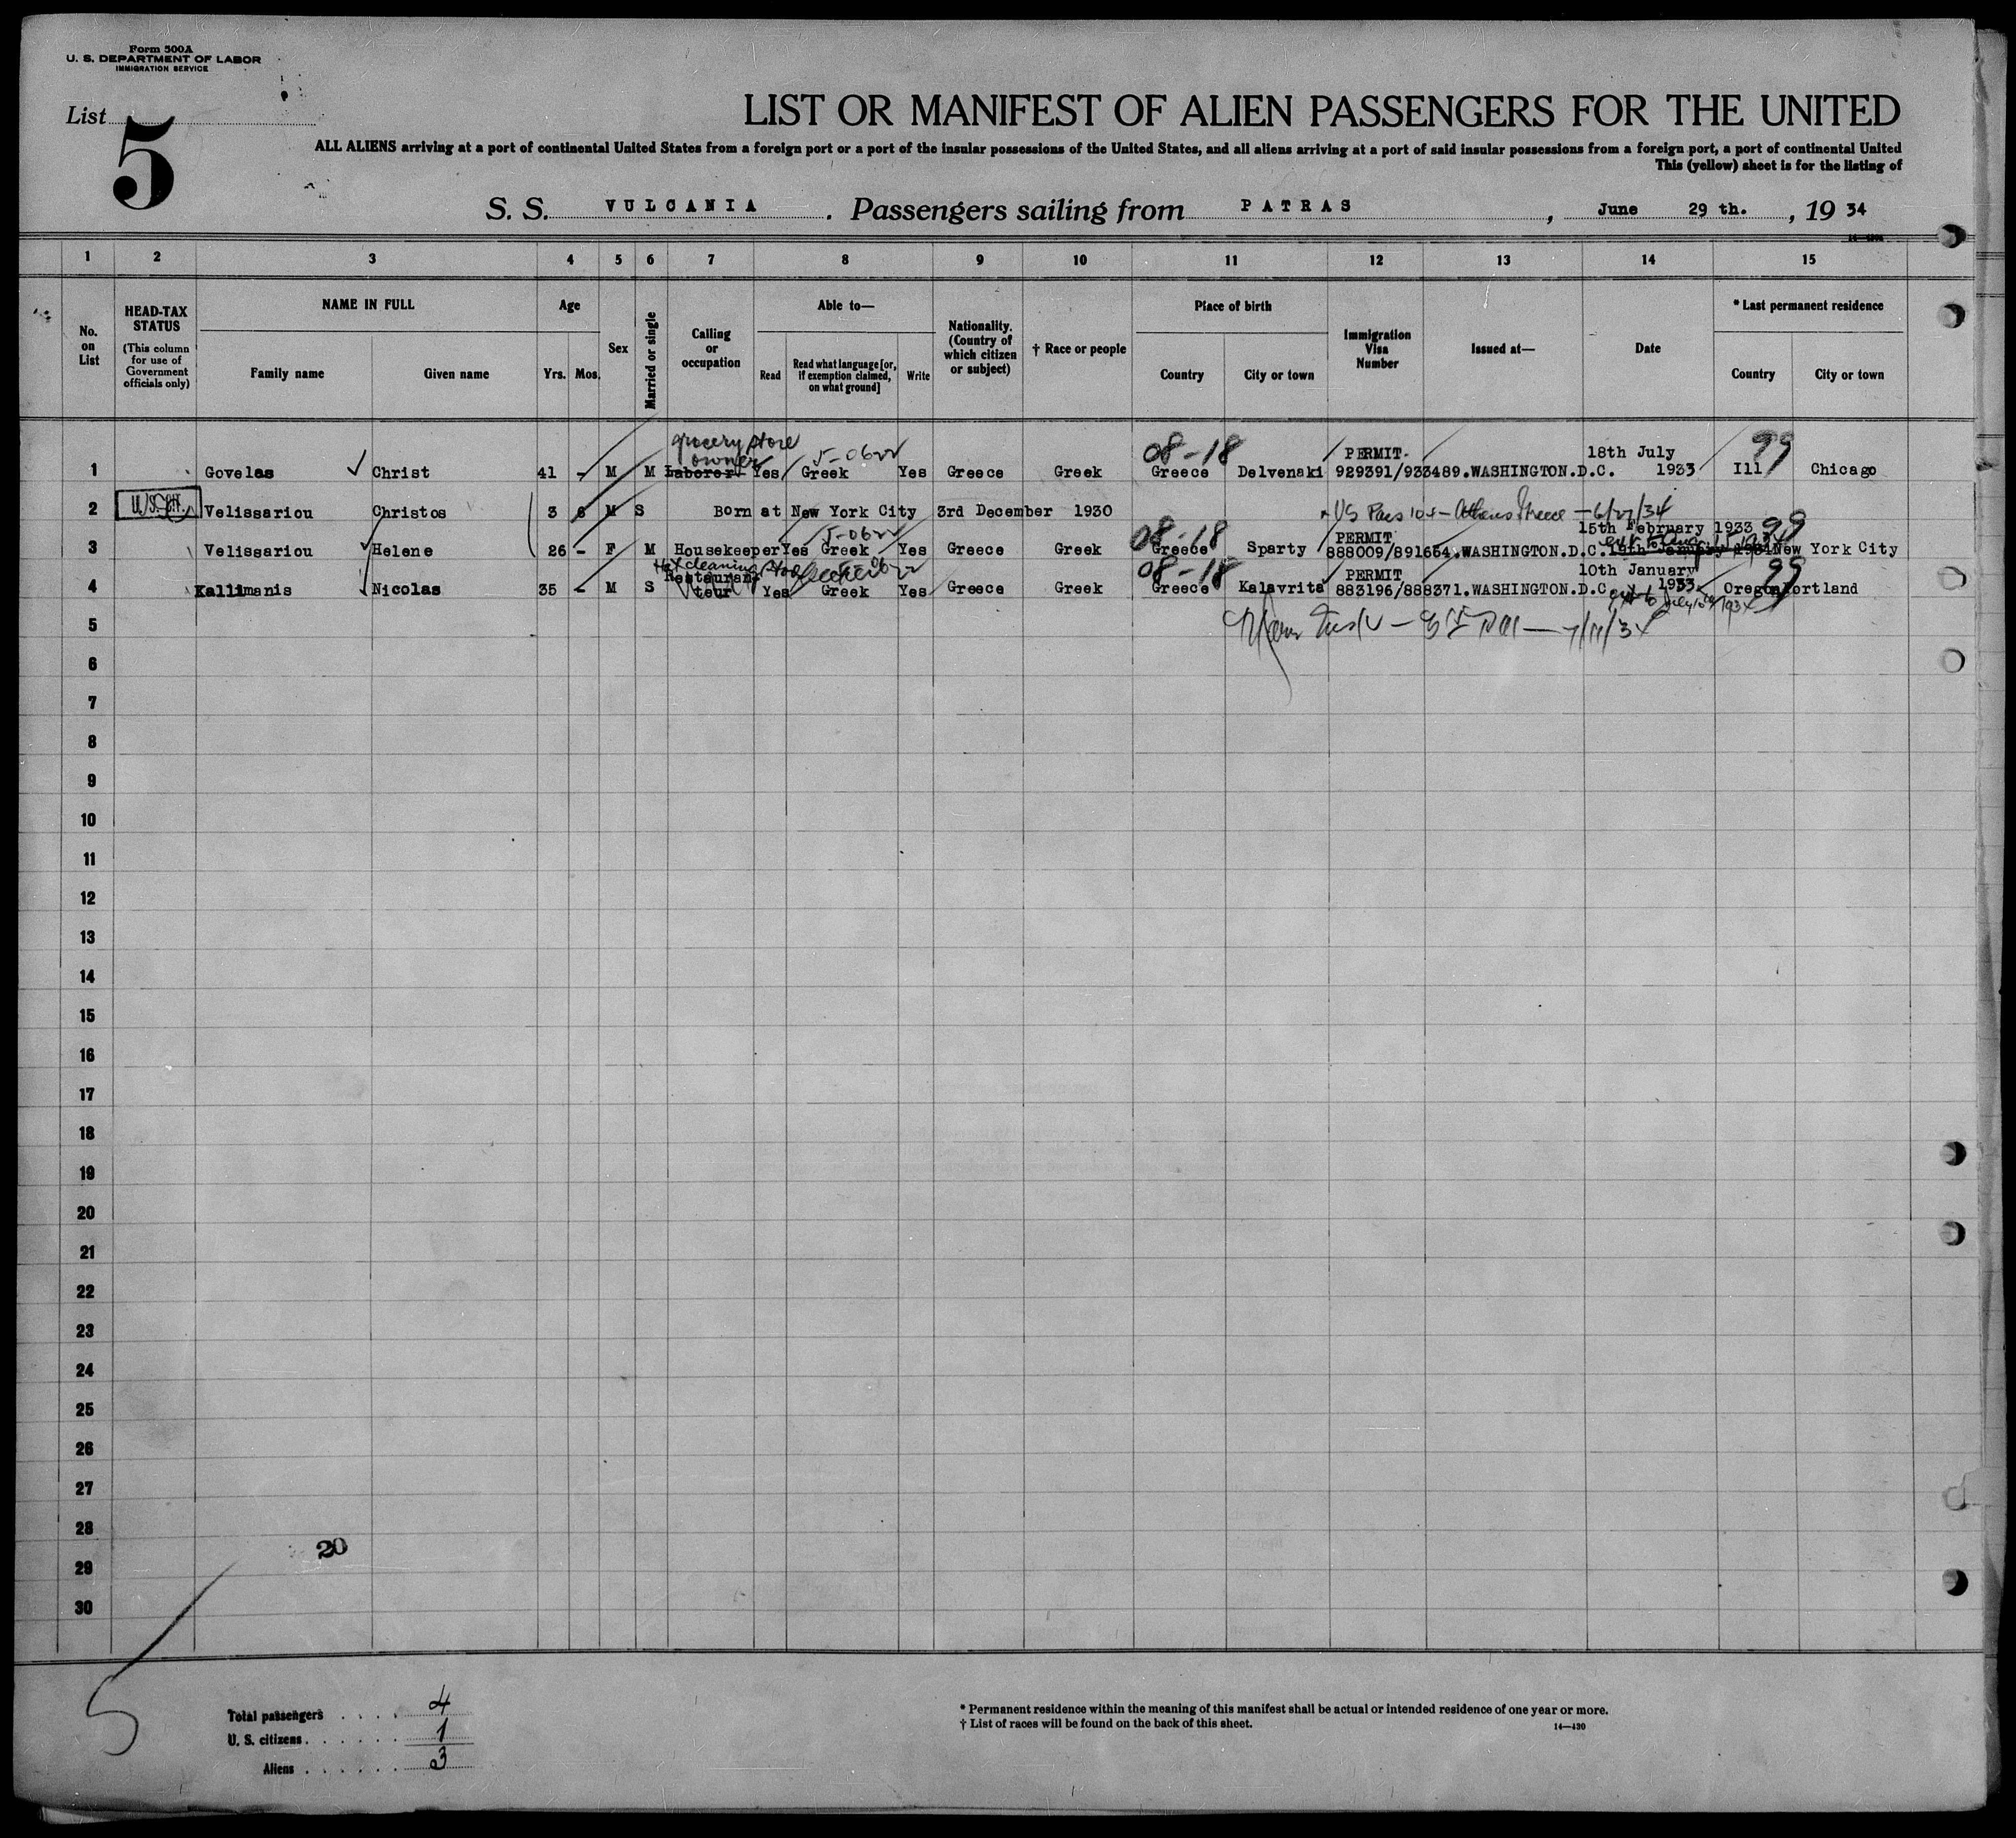 Form 500A
U. S. DEPARTMENT OF LABOR
IMMIGRATION SERVICE
List 5
LIST OR MANIFEST OF ALIEN PASSENGERS FOR THE UNITED
ALL ALIENS arriving at a port of continental United States from a foreign port or a port of the insular possessions of the United States, and all aliens arriving at a port of said insular possessions from a foreign port, a port of continental United
This (yellow) sheet is for the listing of
S. S. VULCANIA . Passengers sailing from PATRAS , June 29 th. , 19 34
1 2 3 4 5 6 7 8 9 10 11 12 13 14 15
No. on List
HEAD-TAX STATUS (This column for use of Government officials only)
NAME IN FULL
Family name Given name
Age
Yrs. Mos.
Sex
Married or single
Calling or occupation
Able to—
Read
Read what language [or, if exemption claimed, on what ground]
Write
Nationality. (Country of which citizen or subject)
† Race or people
Place of birth
Country City or town
Immigration Visa Number
Issued at—
Date
* Last permanent residence
Country City or town
grocery store 5-0622 08-18 PERMIT 18th July 99
owner
1 Govelas Christ 41 - M M Laborer Yes Greek Yes Greece Greek Greece Delvenaki 929391/933489.WASHINGTON.D.C. 1933 Ill Chicago
2 Velissariou Christos 3 6 M S Born at New York City 3rd December 1930 US Pass 104 - Athens Greece - 6/27/34
5-0622 08-18 PERMIT 15th February 1933 99
3 Velissariou Helene 26 - F M Housekeeper Yes Greek Yes Greece Greek Greece Sparty 888009/891664.WASHINGTON.D.C. New York City
Hat cleaning store 08-18 PERMIT 10th January 99
4 Kallimanis Nicolas 35 - M S Restaurant teur Yes Greek Yes Greece Greek Greece Kalavrita 883196/888371.WASHINGTON.D.C 1933 Oregon Portland
ext to July 10th 1934
5 7/11/34
6
7
8
9
10
11
12
13
14
15
16
17
18
19
20
21
22
23
24
25
26
27
28
20
29
30
5
Total passengers . . . . 4
U. S. citizens . . . . . . 1
Aliens . . . . . . 3
* Permanent residence within the meaning of this manifest shall be actual or intended residence of one year or more.
† List of races will be found on the back of this sheet. 14—430